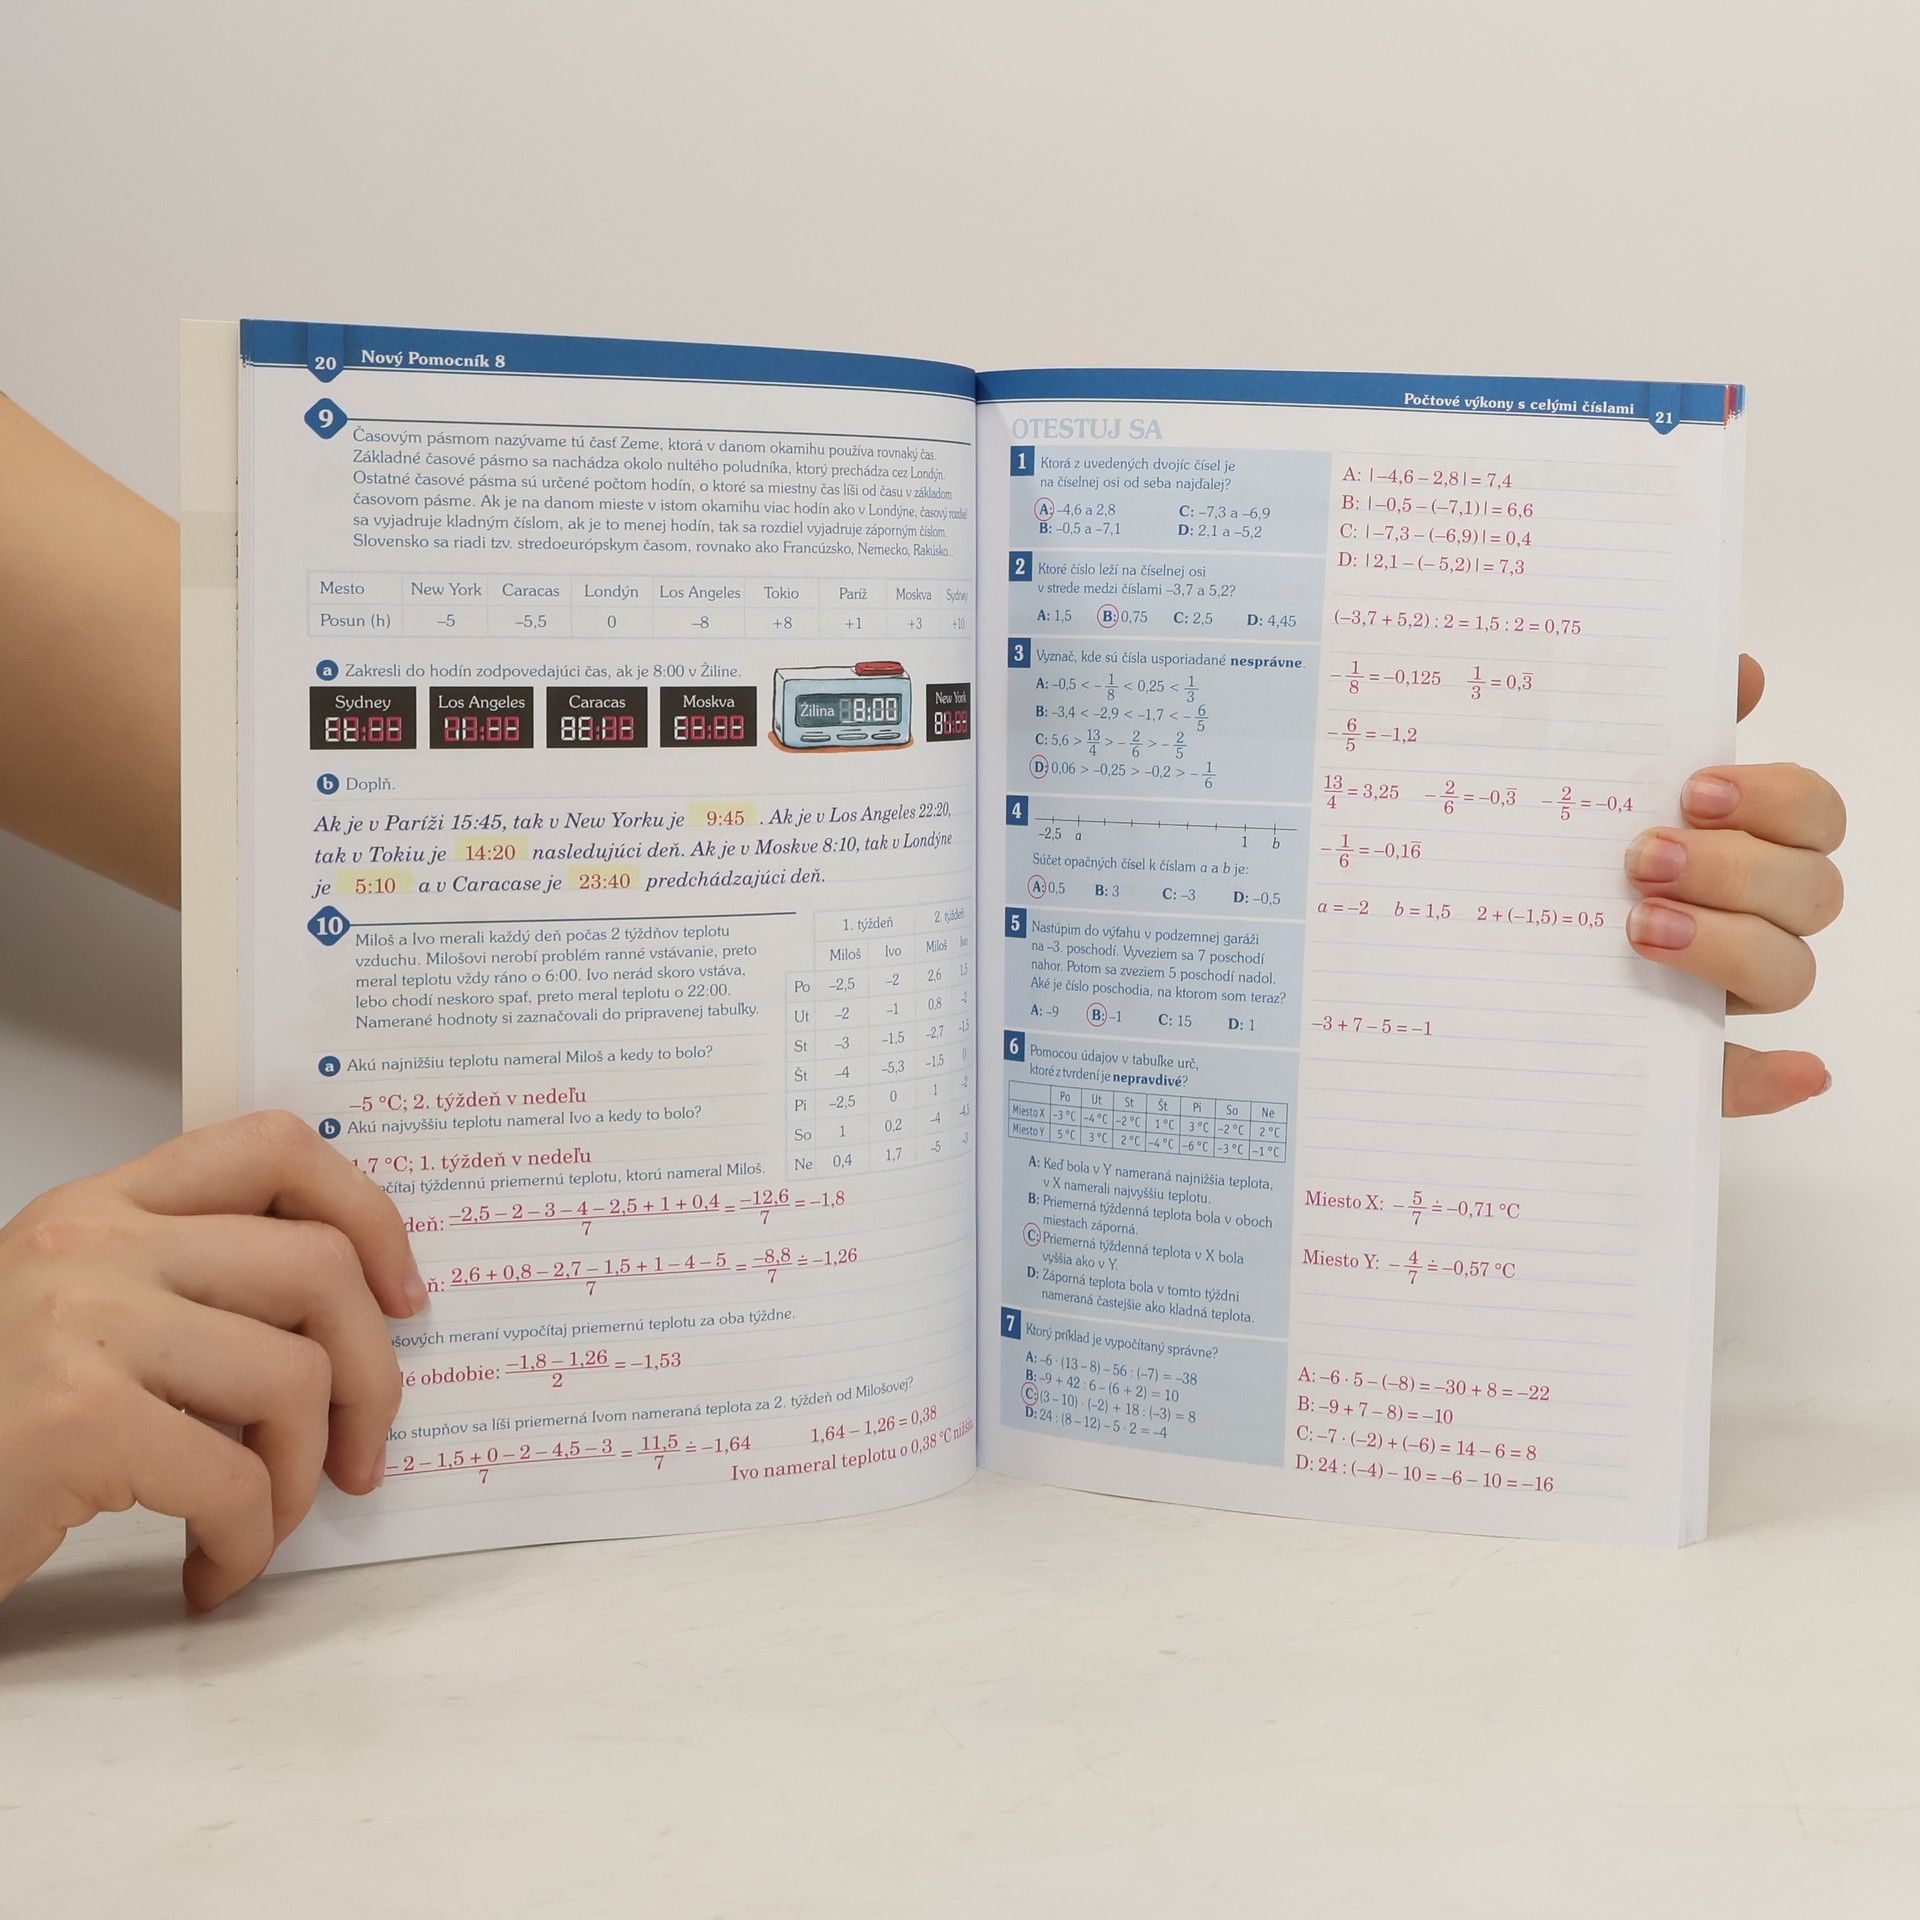 20 Nový Pomocník 8
9
Časovým pásmom nazývame tú časť Zeme, ktorá v danom okamihu používa rovnaký čas.
Základné časové pásmo sa nachádza okolo nultého poludníka, ktorý prechádza cez Londýn.
Ostatné časové pásma sú určené počtom hodín, o ktoré sa miestny čas líši od času v základom
časovom pásme. Ak je na danom mieste v istom okamihu viac hodín ako v Londýne, časový rozdiel
sa vyjadruje kladným číslom, ak je to menej hodín, tak sa rozdiel vyjadruje záporným číslom.
Slovensko sa riadi tzv. stredoeurópskym časom, rovnako ako Francúzsko, Nemecko, Rakúsko...
Mesto New York Caracas Londýn Los Angeles Tokio Paríž Moskva Sydney
Posun (h) –5 –5,5 0 –8 +8 +1 +3 +10
a Zakresli do hodín zodpovedajúci čas, ak je 8:00 v Žiline.
Sydney Los Angeles Caracas Moskva Žilina 8:00 New York
b Doplň.
Ak je v Paríži 15:45, tak v New Yorku je 9:45 . Ak je v Los Angeles 22:20,
tak v Tokiu je 14:20 nasledujúci deň. Ak je v Moskve 8:10, tak v Londýne
je 5:10 a v Caracase je 23:40 predchádzajúci deň.
10
Miloš a Ivo merali každý deň počas 2 týždňov teplotu
vzduchu. Milošovi nerobí problém ranné vstávanie, preto
meral teplotu vždy ráno o 6:00. Ivo nerád skoro vstáva,
lebo chodí neskoro spať, preto meral teplotu o 22:00.
Namerané hodnoty si zaznačovali do pripravenej tabuľky.
1. týždeň 2. týždeň
Miloš Ivo Miloš Ivo
Po –2,5 –2 2,6 1,5
Ut –2 –1 0,8 –2
St –3 –1,5 –2,7 –1,5
Št –4 –5,3 –1,5 0
Pi –2,5 0 1 –2
So 1 0,2 –4 –4,5
Ne 0,4 1,7 –5 –3
a Akú najnižšiu teplotu nameral Miloš a kedy to bolo?
–5 °C; 2. týždeň v nedeľu
b Akú najvyššiu teplotu nameral Ivo a kedy to bolo?
1,7 °C; 1. týždeň v nedeľu
čítaj týždennú priemernú teplotu, ktorú nameral Miloš.
deň: (–2,5 – 2 – 3 – 4 – 2,5 + 1 + 0,4)/7 = –12,6/7 = –1,8
ň: (2,6 + 0,8 – 2,7 – 1,5 + 1 – 4 – 5)/7 = –8,8/7 ≐ –1,26
šových meraní vypočítaj priemernú teplotu za oba týždne.
lé obdobie: (–1,8 – 1,26)/2 = –1,53
ko stupňov sa líši priemerná Ivom nameraná teplota za 2. týždeň od Milošovej?
– 2 – 1,5 + 0 – 2 – 4,5 – 3/7 = 11,5/7 ≐ –1,64 1,64 – 1,26 = 0,38
Ivo nameral teplotu o 0,38 °C nižšiu
Počtové výkony s celými číslami 21
OTESTUJ SA
1 Ktorá z uvedených dvojíc čísel je
na číselnej osi od seba najďalej?
A: –4,6 a 2,8 C: –7,3 a –6,9
B: –0,5 a –7,1 D: 2,1 a –5,2
A: |–4,6 – 2,8| = 7,4
B: |–0,5 – (–7,1)| = 6,6
C: |–7,3 – (–6,9)| = 0,4
D: |2,1 – (– 5,2)| = 7,3
2 Ktoré číslo leží na číselnej osi
v strede medzi číslami –3,7 a 5,2?
A: 1,5 B: 0,75 C: 2,5 D: 4,45
(–3,7 + 5,2) : 2 = 1,5 : 2 = 0,75
3 Vyznač, kde sú čísla usporiadané nesprávne.
A: –0,5 < –1/8 < 0,25 < 1/3
B: –3,4 < –2,9 < –1,7 < –6/5
C: 5,6 > 13/4 > –2/6 > –2/5
D: 0,06 > –0,25 > –0,2 > –1/6
–1/8 = –0,125 1/3 = 0,3̅
–6/5 = –1,2
13/4 = 3,25 –2/6 = –0,3̅ –2/5 = –0,4
–1/6 = –0,16̅
4
–2,5 a 1 b
Súčet opačných čísel k číslam a a b je:
A: 0,5 B: 3 C: –3 D: –0,5
a = –2 b = 1,5 2 + (–1,5) = 0,5
5 Nastúpim do výťahu v podzemnej garáži
na –3. poschodí. Vyveziem sa 7 poschodí
nahor. Potom sa zveziem 5 poschodí nadol.
Aké je číslo poschodia, na ktorom som teraz?
A: –9 B: –1 C: 15 D: 1
–3 + 7 – 5 = –1
6 Pomocou údajov v tabuľke urč,
ktoré z tvrdení je nepravdivé?
Po Ut St Št Pi So Ne
Miesto X –3 °C –4 °C –2 °C 1 °C 3 °C –2 °C 2 °C
Miesto Y 5 °C 3 °C 2 °C –4 °C –6 °C –3 °C –1 °C
A: Keď bola v Y nameraná najnižšia teplota,
v X namerali najvyššiu teplotu.
B: Priemerná týždenná teplota bola v oboch
miestach záporná.
C: Priemerná týždenná teplota v X bola
vyššia ako v Y.
D: Záporná teplota bola v tomto týždni
nameraná častejšie ako kladná teplota.
Miesto X: –5/7 ≐ –0,71 °C
Miesto Y: –4/7 ≐ –0,57 °C
7 Ktorý príklad je vypočítaný správne?
A: –6 · (13 – 8) – 56 : (–7) = –38
B: –9 + 42 : 6 – (6 + 2) = 10
C: (3 – 10) · (–2) + 18 : (–3) = 8
D: 24 : (8 – 12) – 5 · 2 = –4
A: –6 · 5 – (–8) = –30 + 8 = –22
B: –9 + 7 – 8) = –10
C: –7 · (–2) + (–6) = 14 – 6 = 8
D: 24 : (–4) – 10 = –6 – 10 = –16